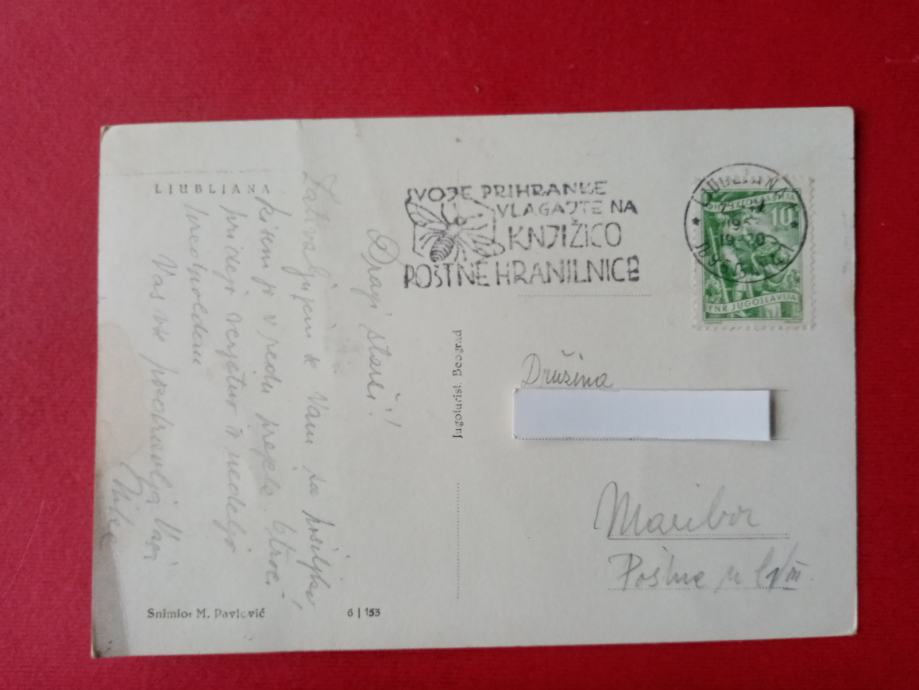 LJUBLJANA
SVOJE PRIHRANKE
VLAGAJTE NA
KNJIŽICO
POŠTNE HRANILNICE
LJUBLJANA
10
FNR JUGOSLAVIJA
Dragi starši!
Zahvaljujem se Vam za pošiljko,
ki sem jo v redu prejela.
pridejo verjetno v nedeljo
Vas vse pozdravlja Vaša
Jugoturist, Beograd
Družina
Maribor
Poštna
Snimio: M. Pavlović
6 | 153